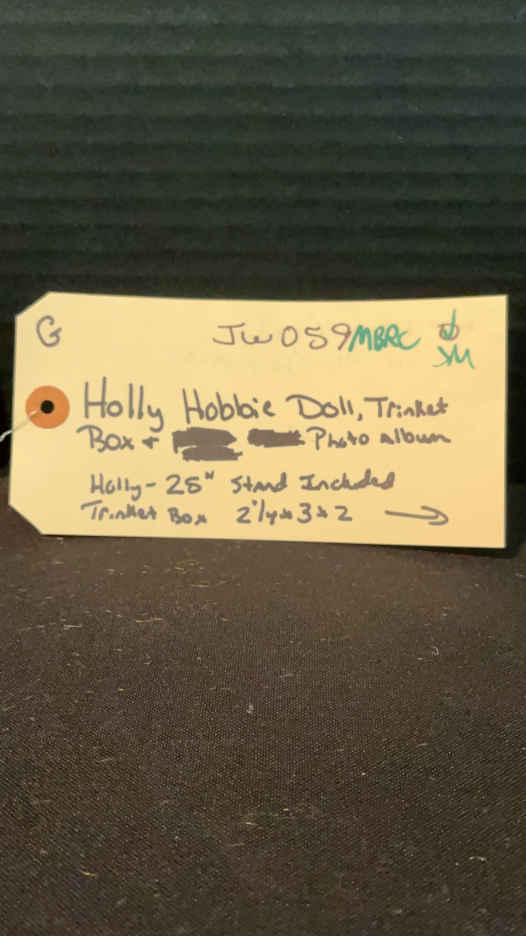 G JW059 MBRC
JM
Holly Hobbie Doll, Trinket
Box + Photo album
Holly - 25" Stand Included
Trinket Box 2 1/4 x 3 x 2 →